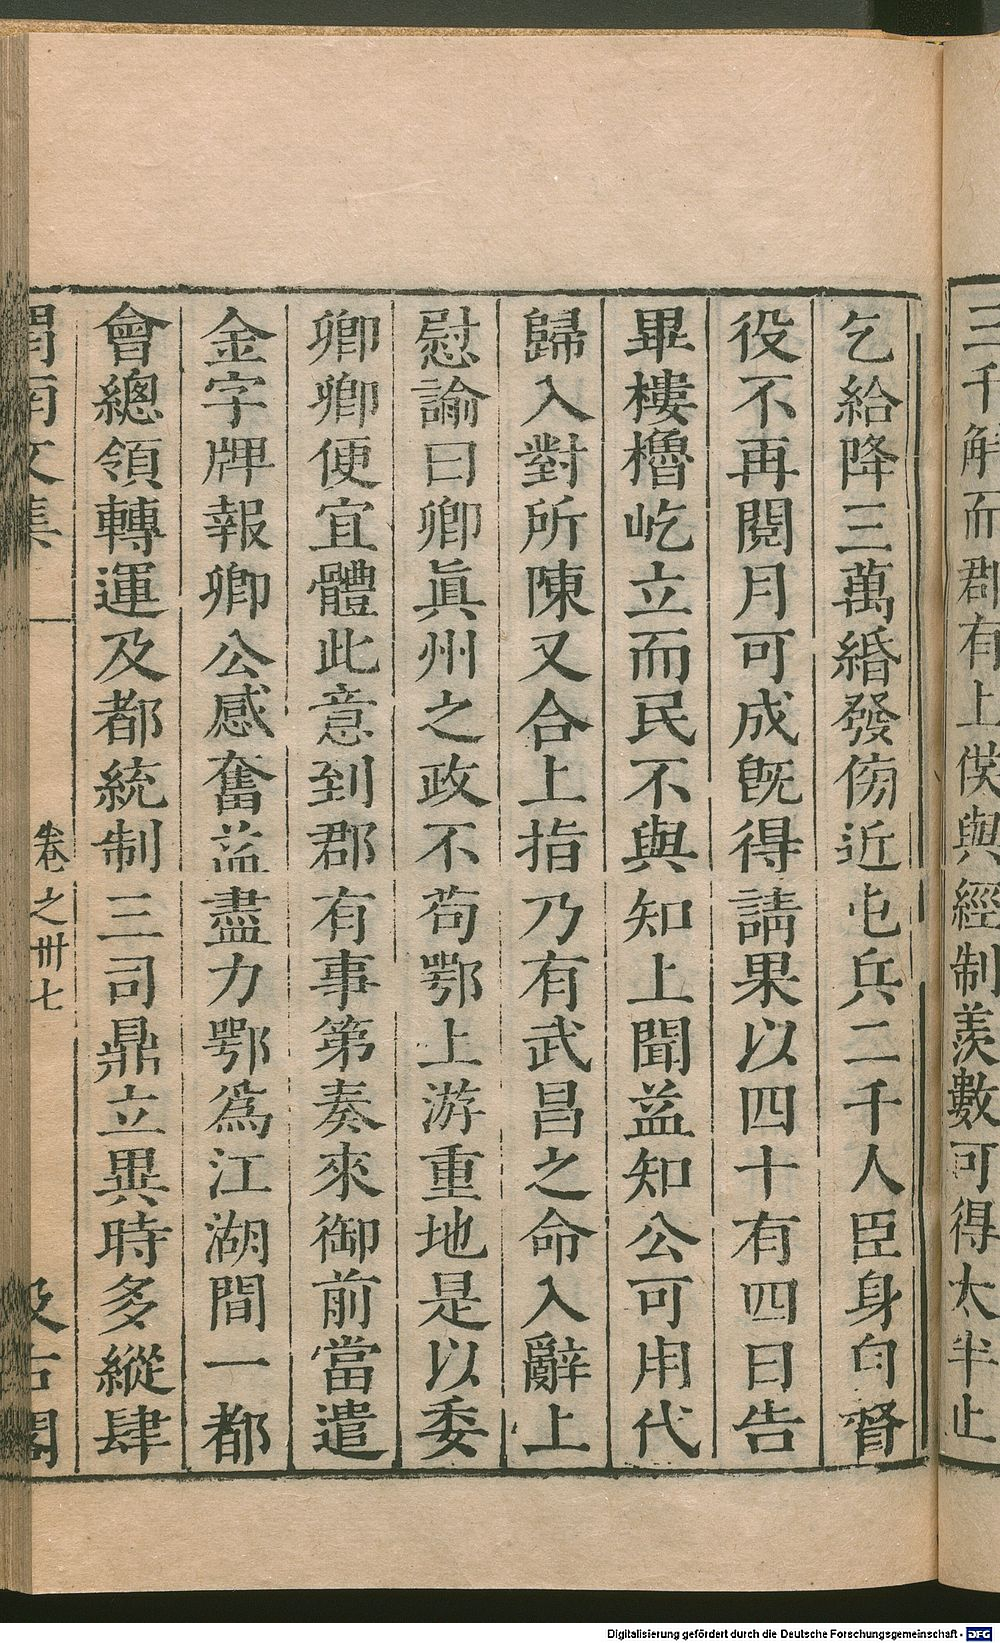 三千解而郡有上供與經制羨數可得太半止
乞給降三萬緡發傍近屯兵二千人臣身自督
役不再閱月可成旣得請果以四十有四日告
畢樓櫓屹立而民不與知上聞益知公可用代
歸入對所陳又合上指乃有武昌之命入辭上
慰諭曰卿眞州之政不苟鄂上游重地是以委
卿卿便宜體此意到郡有事第奏來御前當遣
金字牌報卿公感奮益盡力鄂爲江湖間一都
會總領轉運及都統制三司鼎立異時多縱肆
渭南文集 卷之卅七 汲古閣
Digitalisierung gefördert durch die Deutsche Forschungsgemeinschaft - DFG